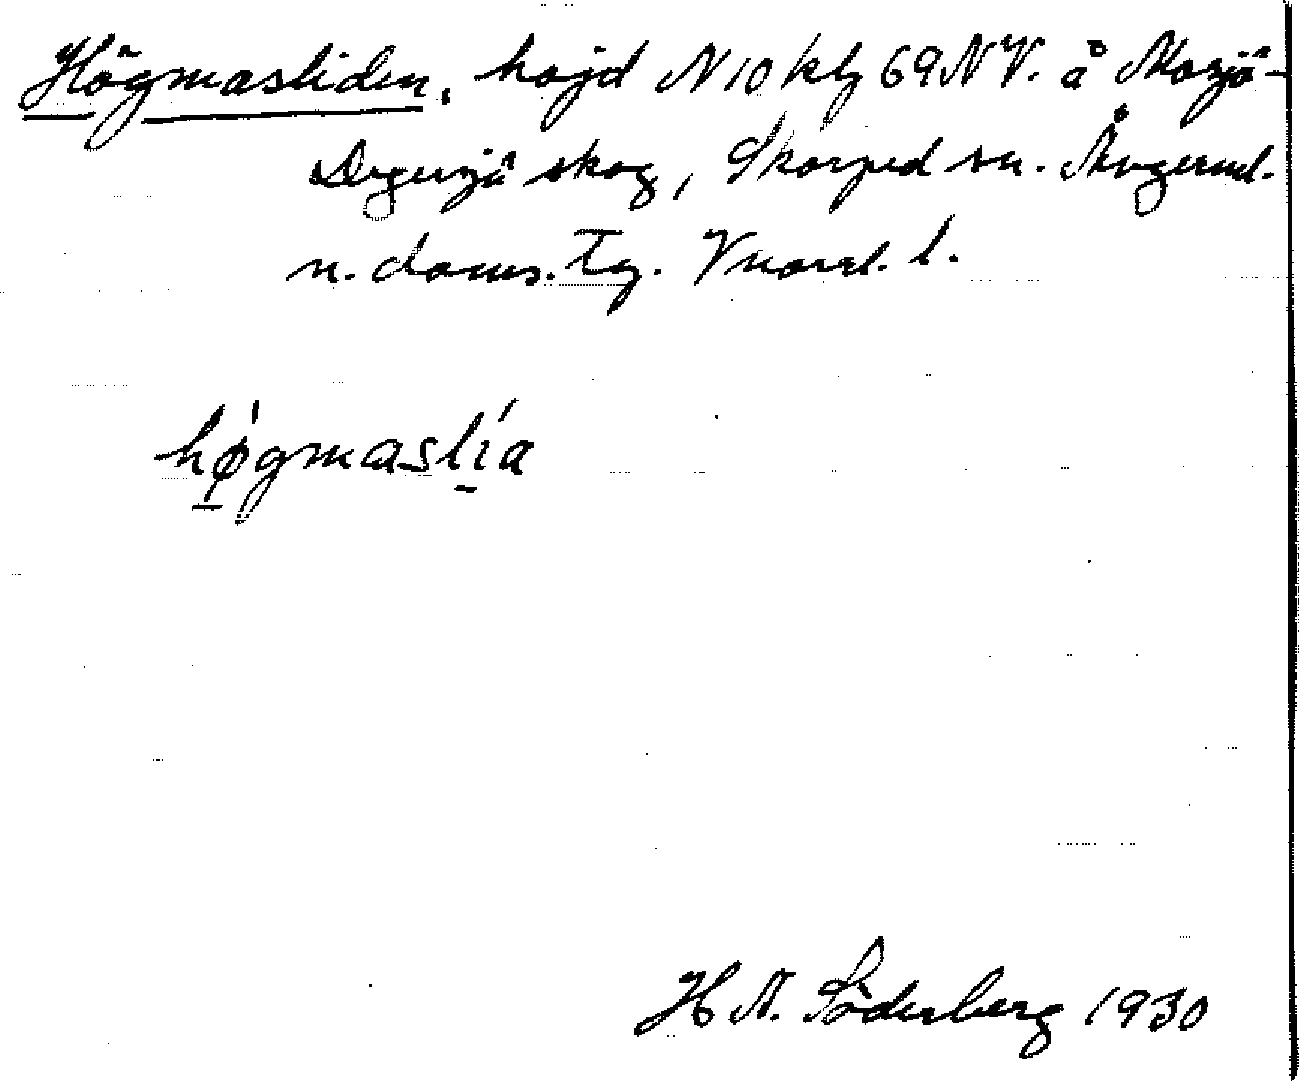 Högmasliden, höjd N 10 kbl 69 NV. å Mosjö-
Degersjö skog, Skorped sn. Ångerml.
n. doms. Tg. Vnorrl. l.
høgmaslía
H N. Söderberg 1930